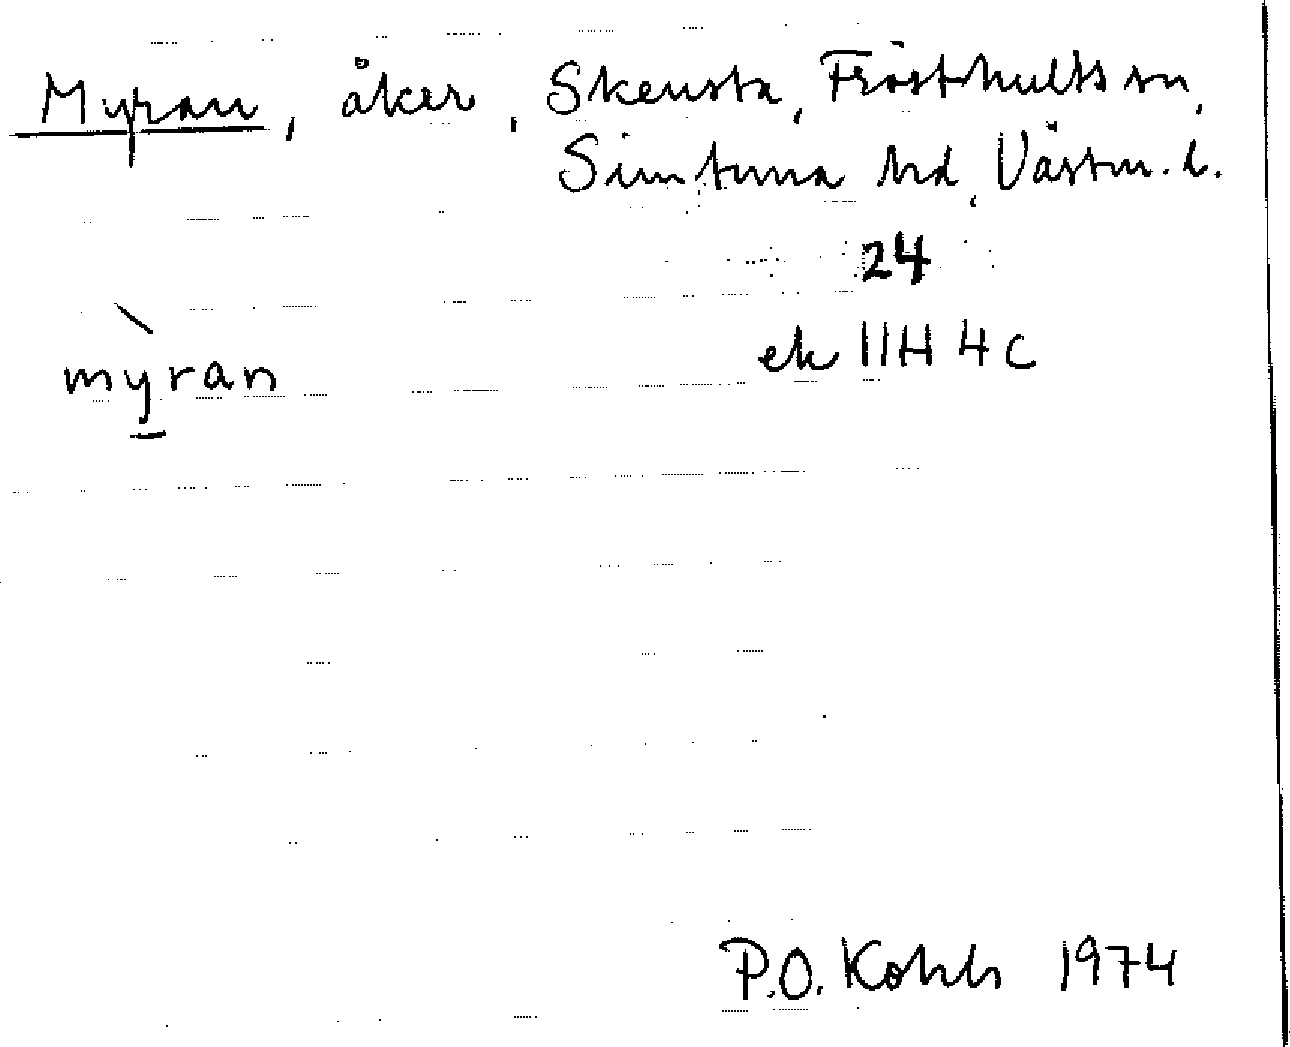 Myran, åker, Skensta, Frösthults sn,
Simtuna hd, Västm. l.
24
ek 11H 4c
mỳran
P.O. Kohls 1974